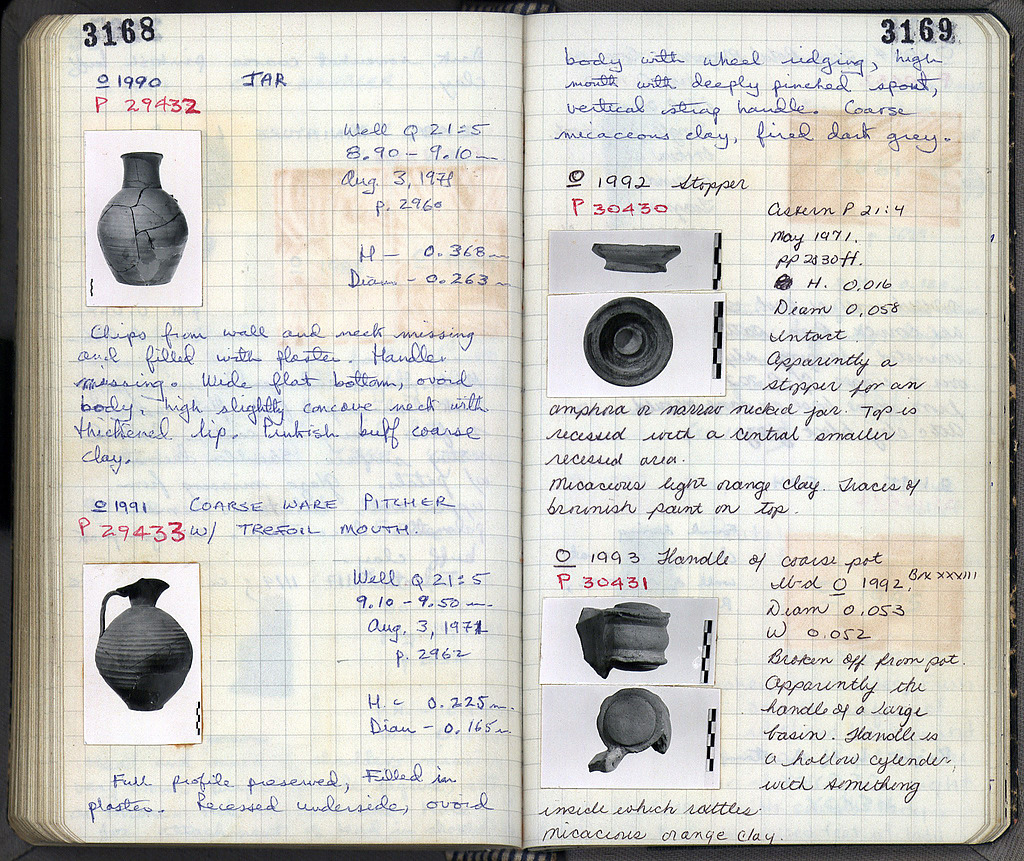 3168
O 1990 JAR
P 29432
Well Q 21:5
8.90 – 9.10 m
Aug. 3, 1971
p. 2960
H – 0.368 m
Diam – 0.263 m
Chips from wall and neck missing
and filled with plaster. Handles
missing. Wide flat bottom, ovoid
body, high slightly concave neck with
thickened lip. Pinkish buff coarse
clay.
O 1991 COARSE WARE PITCHER
P 29433 W/ TREFOIL MOUTH.
Well Q 21:5
9.10 – 9.50 m.
Aug. 3, 1971
p. 2962
H. – 0.225 m.
Diam – 0.165 m.
Full profile preserved, Filled in
plaster. Recessed underside, ovoid
3169
body with wheel ridging, high
mouth with deeply pinched spout,
vertical strap handle. Coarse
micaceous clay, fired dark grey.
O 1992 Stopper
P 30430
Cistern P 21:4
May 1971.
H. 0,016
Diam 0,058
Intact.
Apparently a
stopper for an
amphora or narrow necked jar. Top is
recessed with a central smaller
recessed area.
Micacious light orange clay. Traces of
brownish paint on top.
O 1993 Handle of coarse pot
P 30431
O 1992, Box XXXIII
Diam 0,053
W 0,052
Broken off from pot.
Apparently the
handle of a large
basin. Handle is
a hollow cylender,
with something
inside which rattles.
Micacious orange clay.